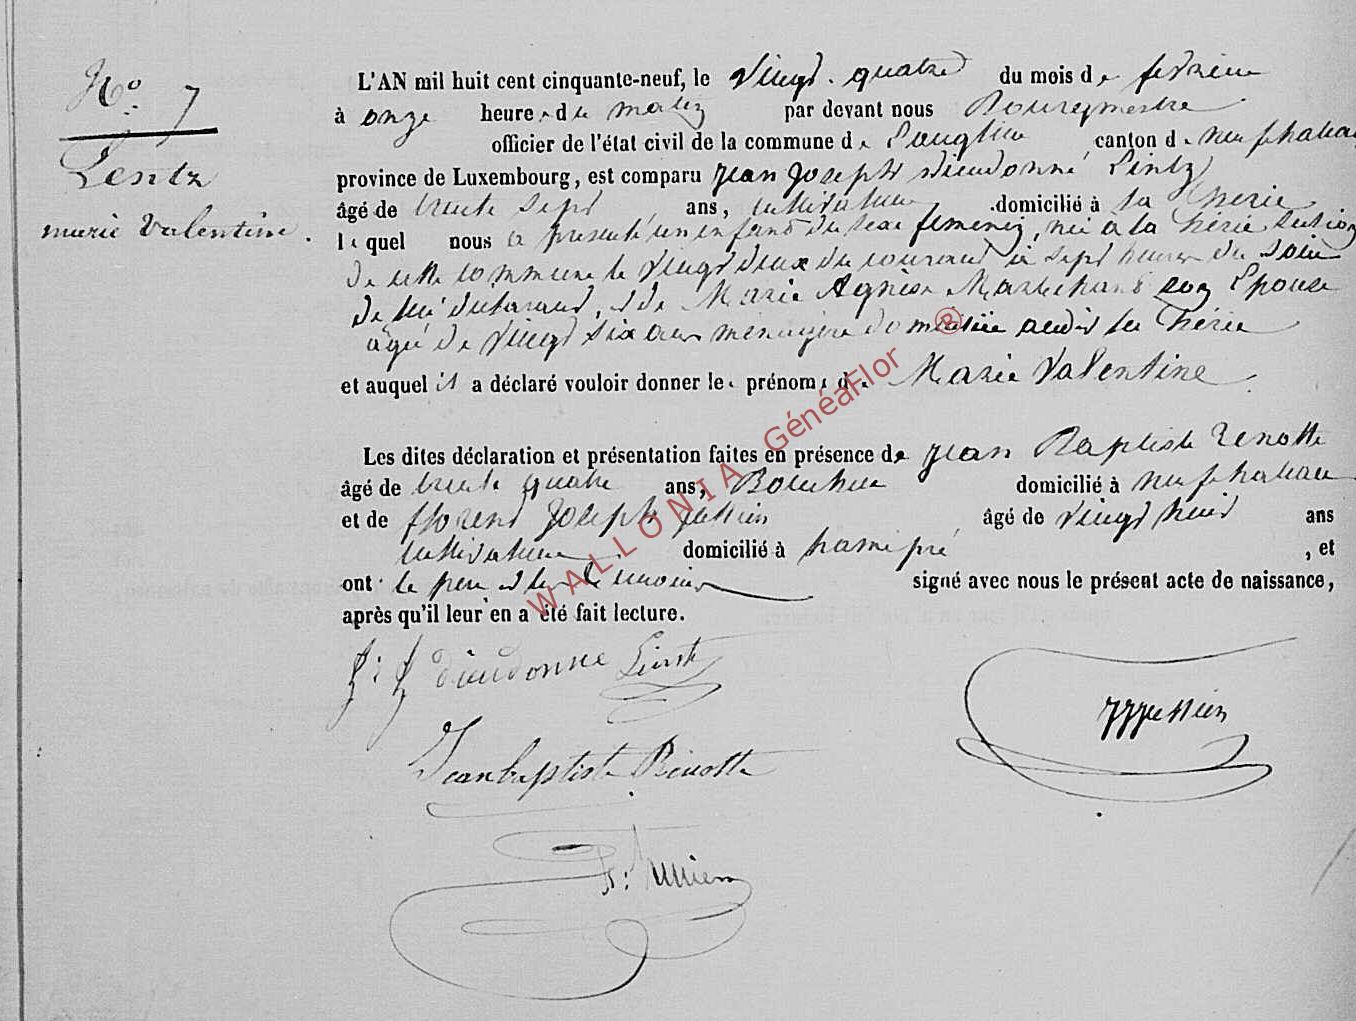 N° 7
Lentz
marie Valentine.
L'AN mil huit cent cinquante-neuf, le Vingt-quatre du mois de fevrier
à onze heures du matin par devant nous Bourgmestre
officier de l'état civil de la commune de Longlier canton de neufchateau
province de Luxembourg, est comparu Jean Joseph Dieudonné Lintz
âgé de trente sept ans, cultivateur domicilié à la Therie
lequel nous a présenté un enfant du sexe femenin, né à la Thérie section
de cette commune le vingt deux du courant à sept heures du soir
de lui déclarant, et de Marie Agnèse Marechant son Epouse
âgé de vingt six ans ménagère domiciliée audit la Thérie
et auquel il a déclaré vouloir donner les prénoms de Marie Valentine.
Les dites déclaration et présentation faites en présence de Jean Baptiste Renotte
âgé de trente quatre ans, domicilié à neufchateau
et de florent Joseph âgé de vingt huit ans
cultivateur domicilié à hamipré , et
ont le père et les témoins signé avec nous le présent acte de naissance,
après qu'il leur en a été fait lecture.
J: J Dieudonne Lintz
Jean baptiste Rénotte
WALLONIA GénéaFlor ®